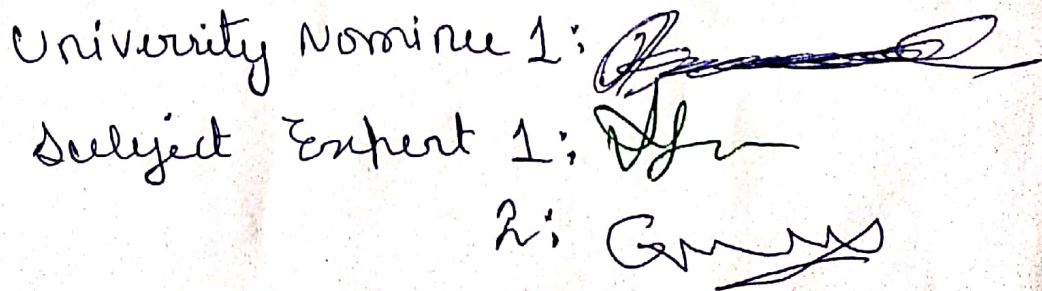 University Nominee 1:
Subject Expert 1:
2: